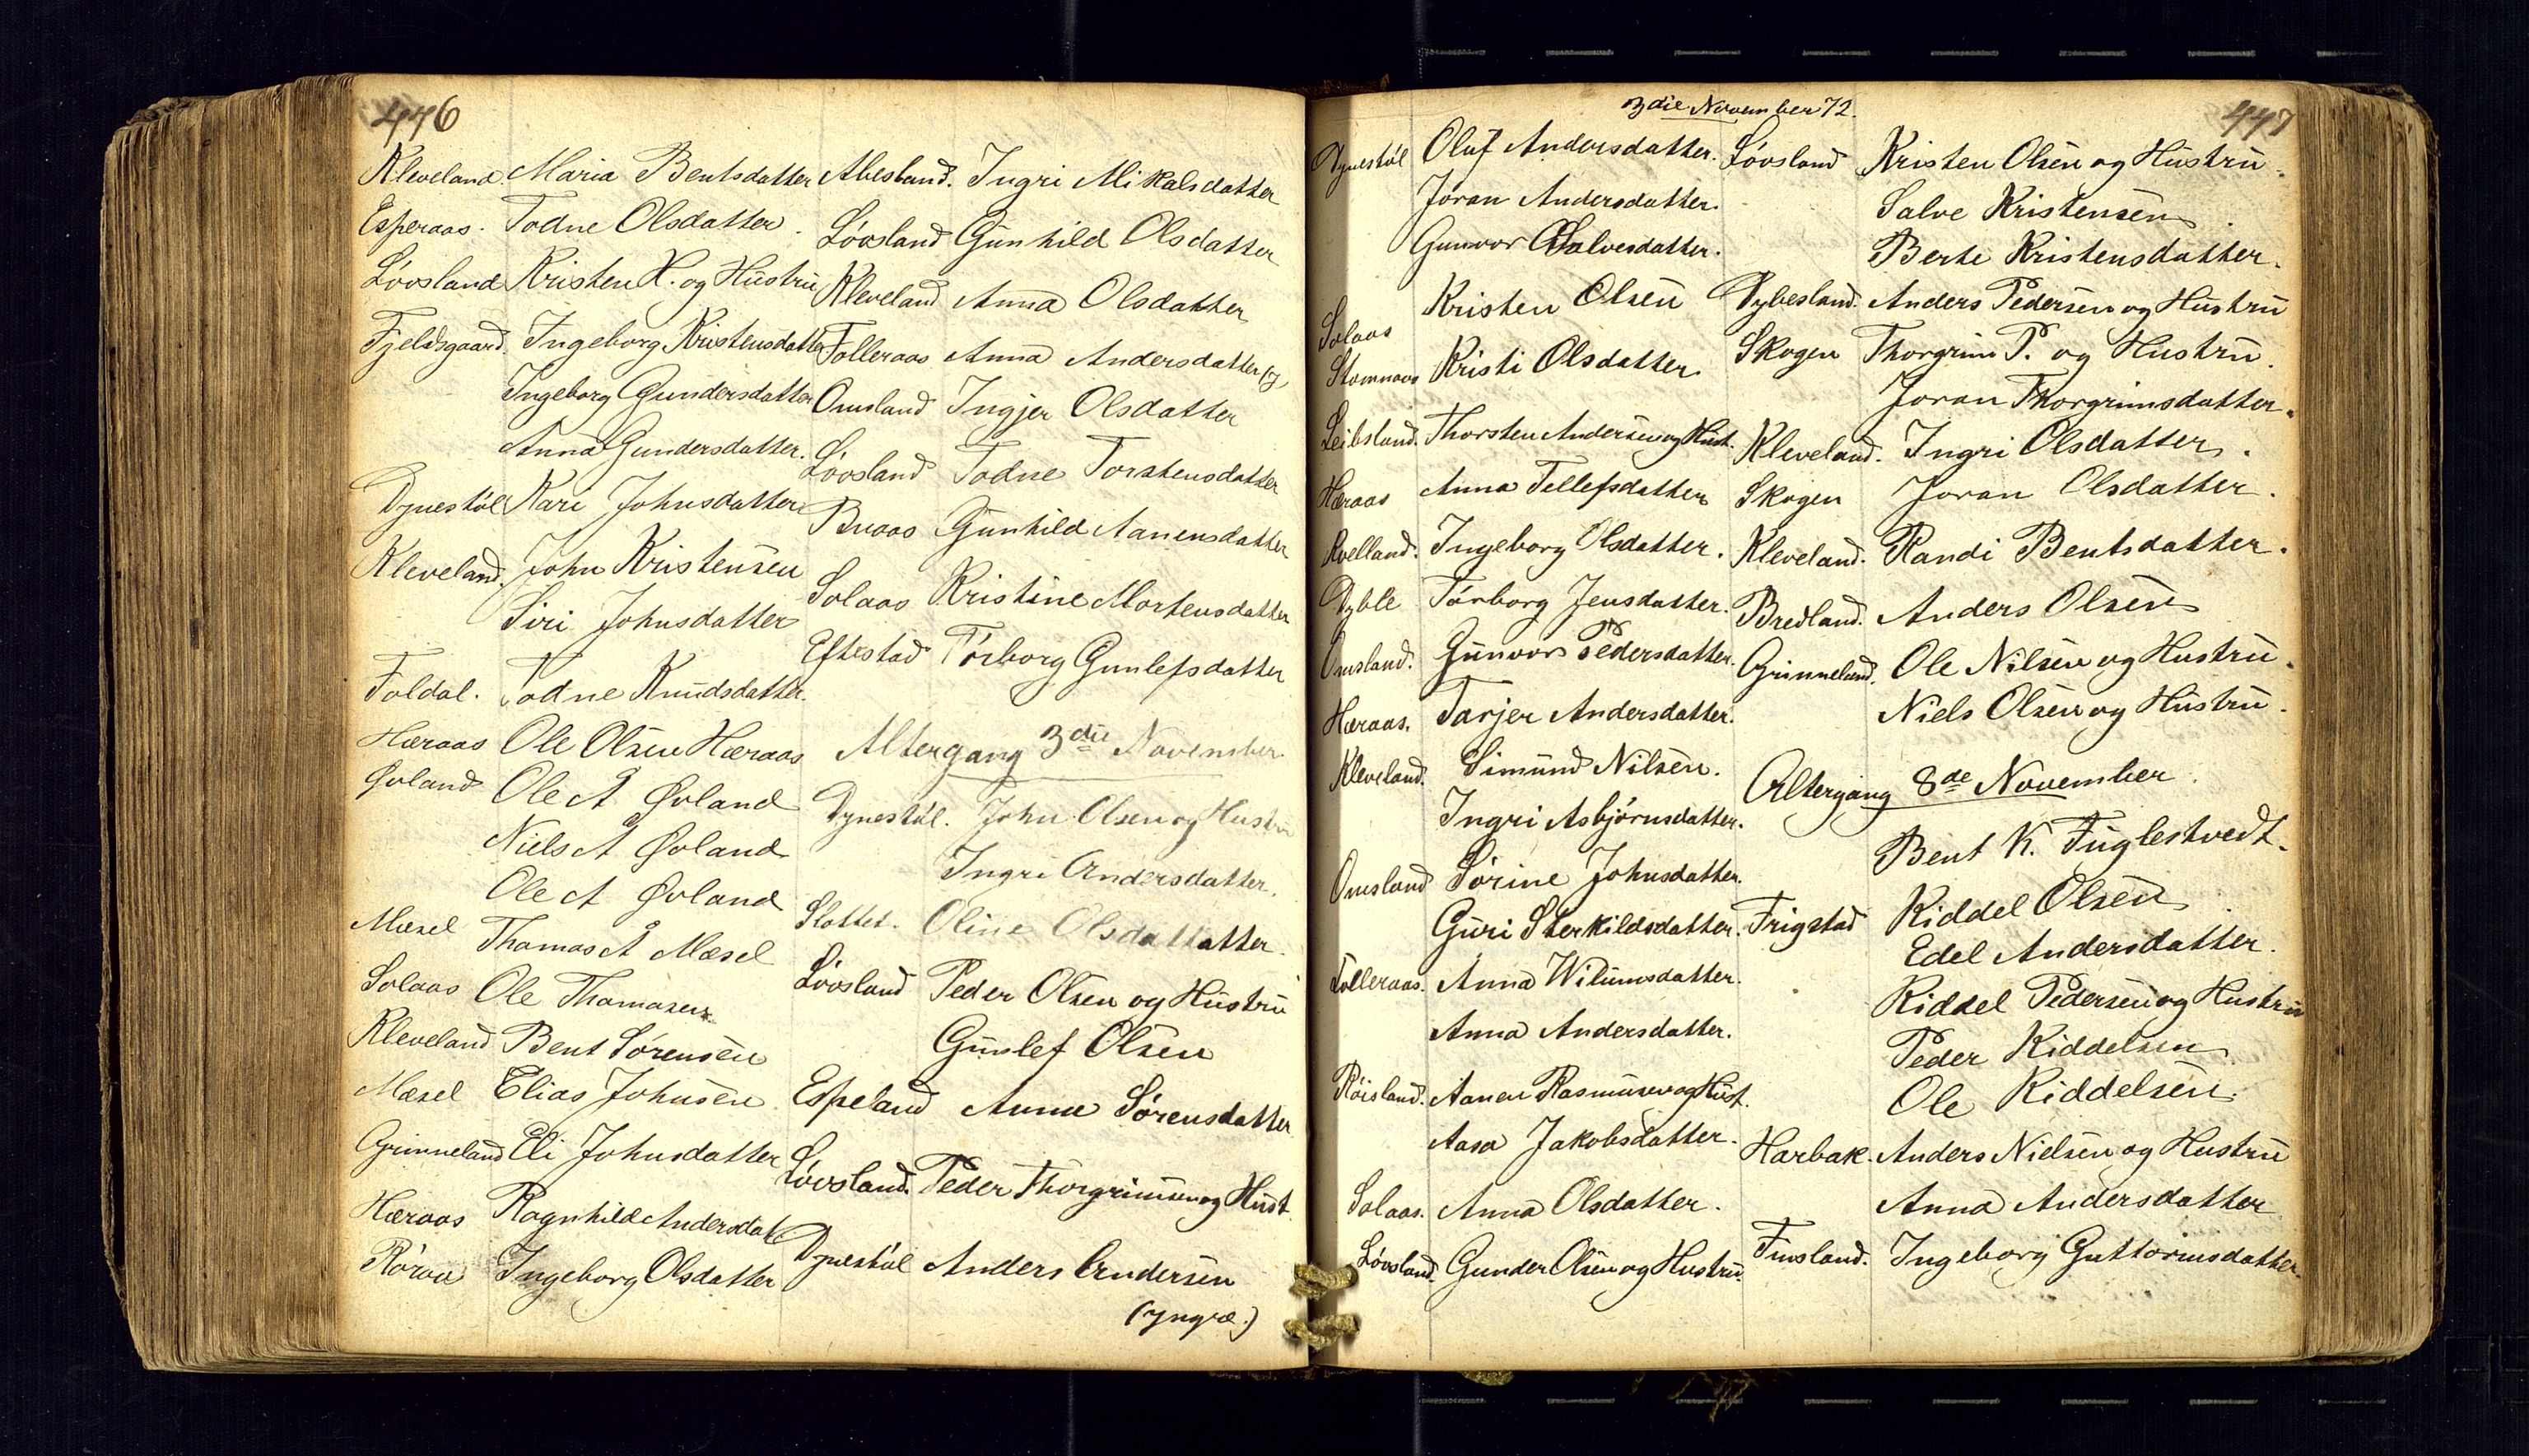 446
Kleveland. Maria Bentsdatter
Esperaas. Todne Olsdatter.
Lövsland Kristen K. og Hustru
Fjeldsgaard. Ingeborg Kristensdatter
Ingeborg Gundersdatter
Anna Gundersdatter.
Dynestöl Kari Johnsdatter
Kleveland. John Kristensen
Siri Johnsdatter
Foldal. Todne Knudsdatter.
Hæraas Ole Olsen Hæraas
Øvland Ole A Øvland
Niels A Øvland
Ole A Øvland
Mæsel Thomas A Mæsel
Solaas Ole Thomasen
Kleveland Bent Sörensen
Mæsel Elias Johnsen
Grinneland Eli Johnsdatter
Hæraas Ragnhild Andersdat
Ingeborg Olsdatter
Abesland. Ingri Mikalsdatter
Lövsland Gunhild Olsdatter
Kleveland Anna Olsdatter
Tolleraas Anna Andersdatter (y
Omsland Ingjer Olsdatter
Lövsland Todne Torstensdatter
Buaas Gunhild Aanensdatter
Solaas Kristine Mortensdatter
Eftestad Törborg Gunlefsdatter
Altergang 3die November.
Dynestöl. John Olsen og Hustru
Ingri Andersdatter.
Slottet. Oline Olsdattatter
Lövsland Peder Olsen og Hustru
Gunlef Olsen
Espeland Anne Sörensdatter
Lövsland. Peder Thorgrimsen og Hust.
Dynestöl Anders Andersen
(yngre.)
3die November 72.
447
Dynestöl Oluf Andersdatter.
Joran Andersdatter.
Gunvor Salvesdatter.
Solaas Kristen Olsen
Stomnaas Kristi Olsdatter
Leibsland. Thorsten Andersen og Hust.
Hæraas Anna Tellefsdatter
Kvelland. Ingeborg Olsdatter.
Dyble Törborg Jensdatter.
Omsland. Gunvor Pedersdatter.
Hæraas. Tarjer Andersdatter.
Kleveland. Simund Nilsen.
Ingri Asbjörnsdatter.
Omsland Sörine Johnsdatter.
Guri Sterkildsdatter.
Tolleraas. Anna Wilumsdatter.
Anna Andersdatter.
Röisland. Aanen Rasmusen og Hust.
Aasa Jakobsdatter.
Solaas. Anna Olsdatter.
Lövsland. Gunder Olsen og Hustru.
Lövsland Kristen Olsen og Hustru.
Salve Kristensen
Berte Kristensdatter.
Dybesland. Anders Pedersen og Hustru
Skogen Thorgrim P. og Hustru.
Joran Thorgrimsdatter.
Kleveland. Ingri Olsdatter.
Skogen Joran Olsdatter.
Kleveland. Randi Bentsdatter.
Bredland. Anders Olsen
Grinneland. Ole Nilsen og Hustru.
Niels Olsen og Hustru.
Altergang 8de November.
Bent K. Fuglestvedt.
Frigstad Kiddel Olsen
Edel Andersdatter.
Kiddel Pedersen og Hustru
Peder Kiddelsen
Ole Kiddelsen.
Harbak. Anders Nielsen og Hustru
Anna Andersdatter
Finsland. Ingeborg Guttormsdatter.